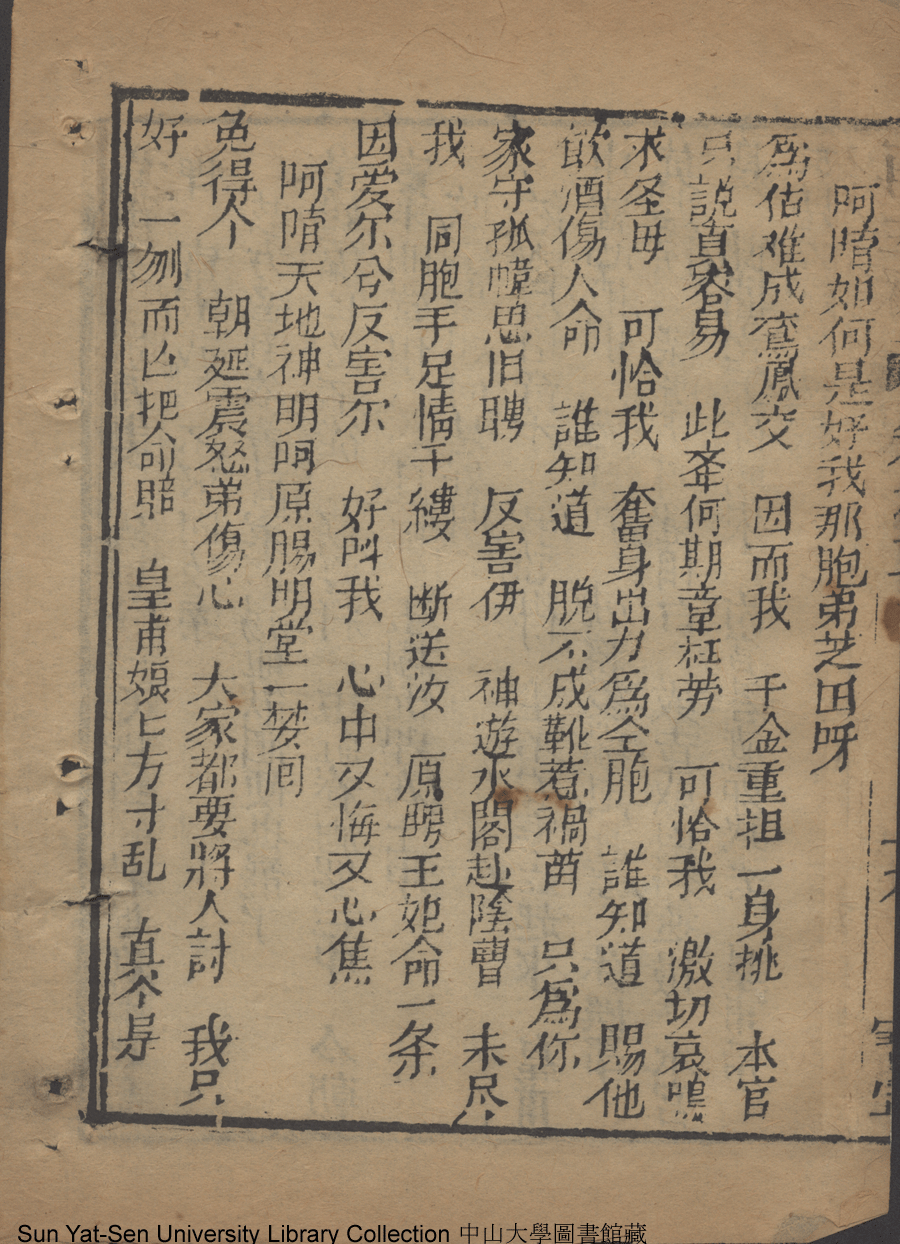 阿唷如何是好我那胞弟芝田呀
爲佔难成鸞鳳交　因而我　千金重担一身挑　本官
只說真容易　此夆何期章枉劳　可恰我　激切哀鳴
求圣毋　可恰我　奮身出力爲仝胞　誰知道　賜他
飲酒傷人命　誰知道　脱不成靴惹禍苗　只爲你
家守孤幃思旧聘　反害伊　神遊水閣赴陰曹　未尽
我　同胞手足情千縷　断送汝　原聘王妃命一条
因爱尔兮反害尔　好呌我　心中又悔又心焦
阿唷天地神明呵原賜明堂一埜囘
免得个　朝延震怒弟傷心　大家都要將人討　我只
好　一刎而亡把命賠　皇甫娘匕方寸乱　真个是
Sun Yat-Sen University Library Collection 中山大學圖書館藏